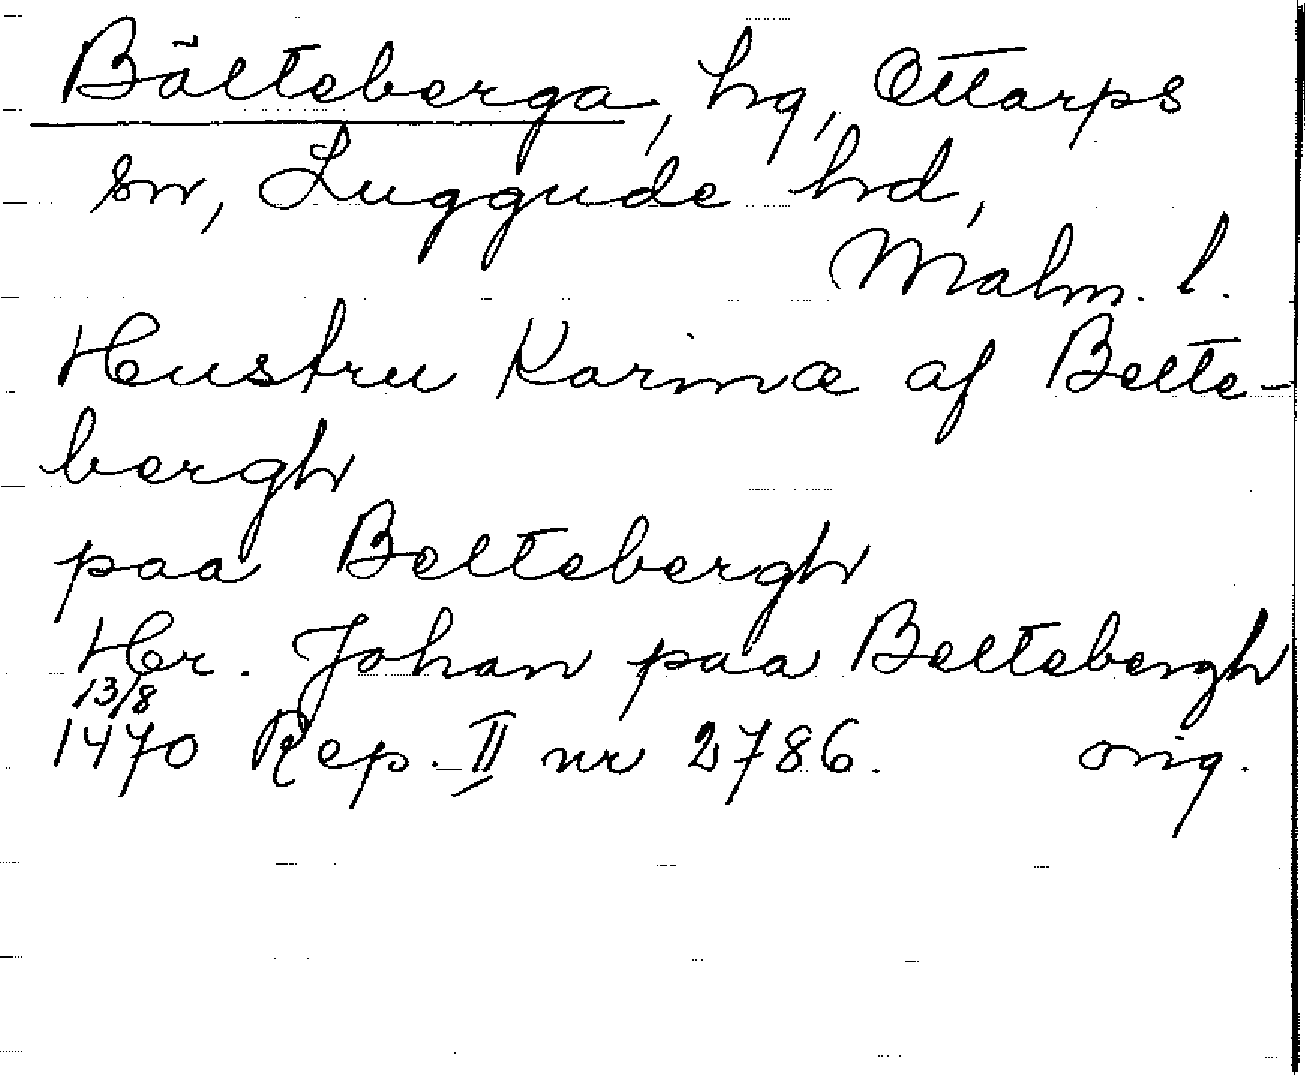 Bälteberga, hg, Ottarps
sn, Luggude hd,
Malm. l.
Hustru Karinæ af Belte-
bergh
paa Beltebergh
Her. Johan paa Beltebergh
13/8
1470 Rep. II nr 2786. orig.